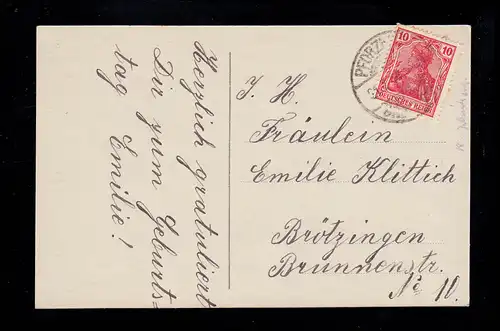 Herzlich gratuliert
Dir zum Geburts=
tag
Emilie!
PFORZ
10 10
DEUTSCHES REICH
J. H.
Fräulein
Emilie Klittich
Brötzingen
Brunnenstr.
No 10.